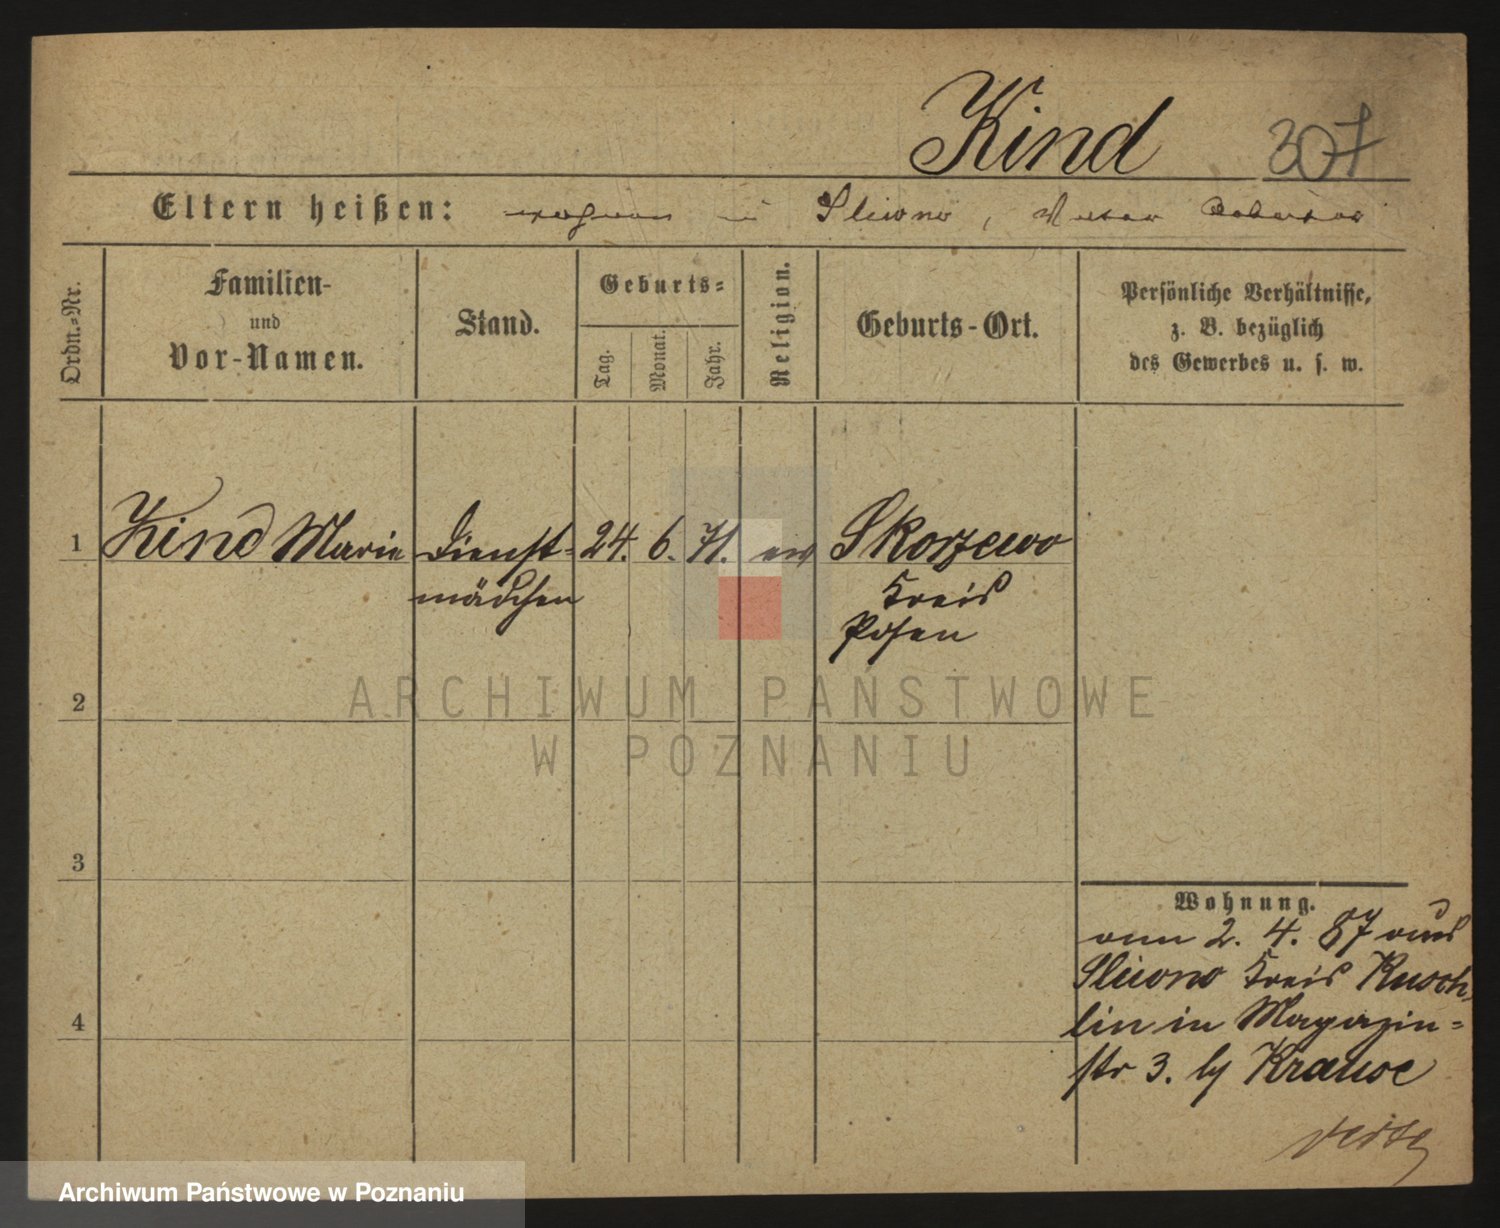 Kind 307
Eltern heißen: wohnen in Sliwno, Vater
Ordn.-Nr.
Familien-
und
Vor-Namen.
Stand.
Geburts-
Tag.
Monat.
Jahr.
Religion.
Geburts-Ort.
Persönliche Verhältnisse,
z. B. bezüglich
des Gewerbes u. s. w.
1 Kind Marie Dienst- 24. 6. 71. ev Skorzewo
mädchen Kreis
Posen
2
3
4
Wohnung.
vom 2. 4. 87 aus
Sliwno Kreis Kusch
lin in Magazin-
str 3. by Krause
ARCHIWUM PAŃSTWOWE
W POZNANIU
Archiwum Państwowe w Poznaniu